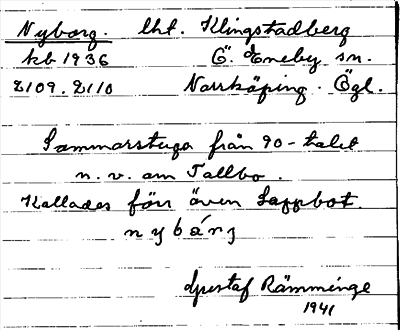 Nyborg. lht. Klingstadberg
kb 1936 Ö. Eneby sn.
2109. 2110 Norrköping. Ögl.
Sommarstuga från 90-talet
n. v. om Tallbo.
Kallades förr även Lappbot.
nybárj
Gustaf Rämminge
1941